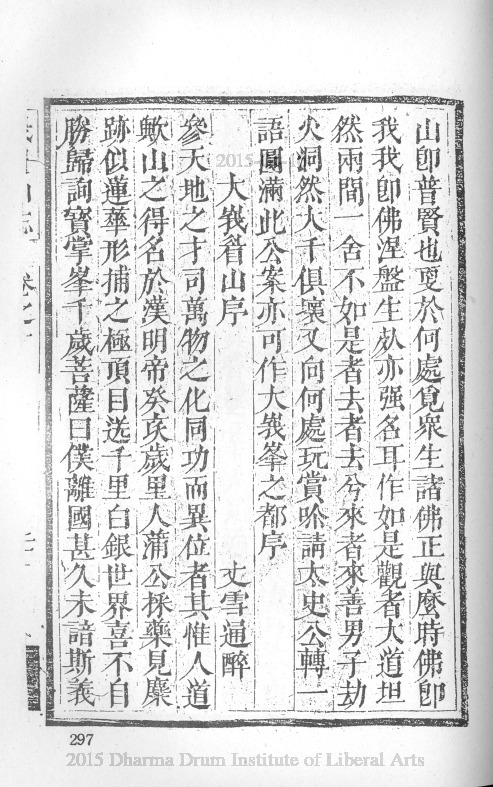 山即普賢也更於何處覓衆生諸佛正與麼時佛即
我我即佛涅盤生死亦强名耳作如是觀者大道坦
然兩間一舍不如是者去者去兮來者來善男子劫
火洞然大千俱壞又向何處玩賞咏請太史公轉一
語圓滿此公案亦可作大峩峯之都序
大峩眉山序
丈雪通醉
參天地之才司萬物之化同功而異位者其惟人道
歟山之得名於漢明帝癸亥歲里人蒲公採藥見麋
跡似蓮華形捕之極頂目迷千里白銀世界喜不自
勝歸詢寶掌峯千歲菩薩曰僕離國甚久未諳斯義
297
2015 Dharma Drum Institute of Liberal Arts